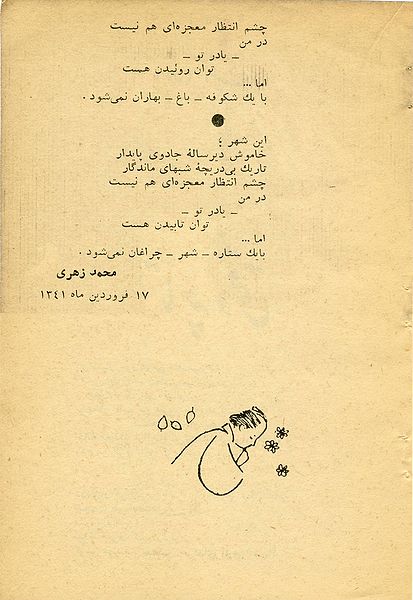 چشم انتظار معجزه‌ای هم نیست
در من
ـ یادر تو ـ
توان روئیدن هست
اما ...
با یك شكوفه ـ باغ ـ بهاران نمی‌شود .
●
این شهر ؛
خاموش دیرسالهٔ جادوی پایدار
تاریك بی‌دریچهٔ شبهای ماندگار
چشم انتظار معجزه‌ای هم نیست
در من
ـ یادر تو ـ
توان تابیدن هست
اما ...
بایك ستاره ـ شهر ـ چراغان نمی‌شود .
محمد زهری
۱۷ فروردین ماه ۱۳٤۱